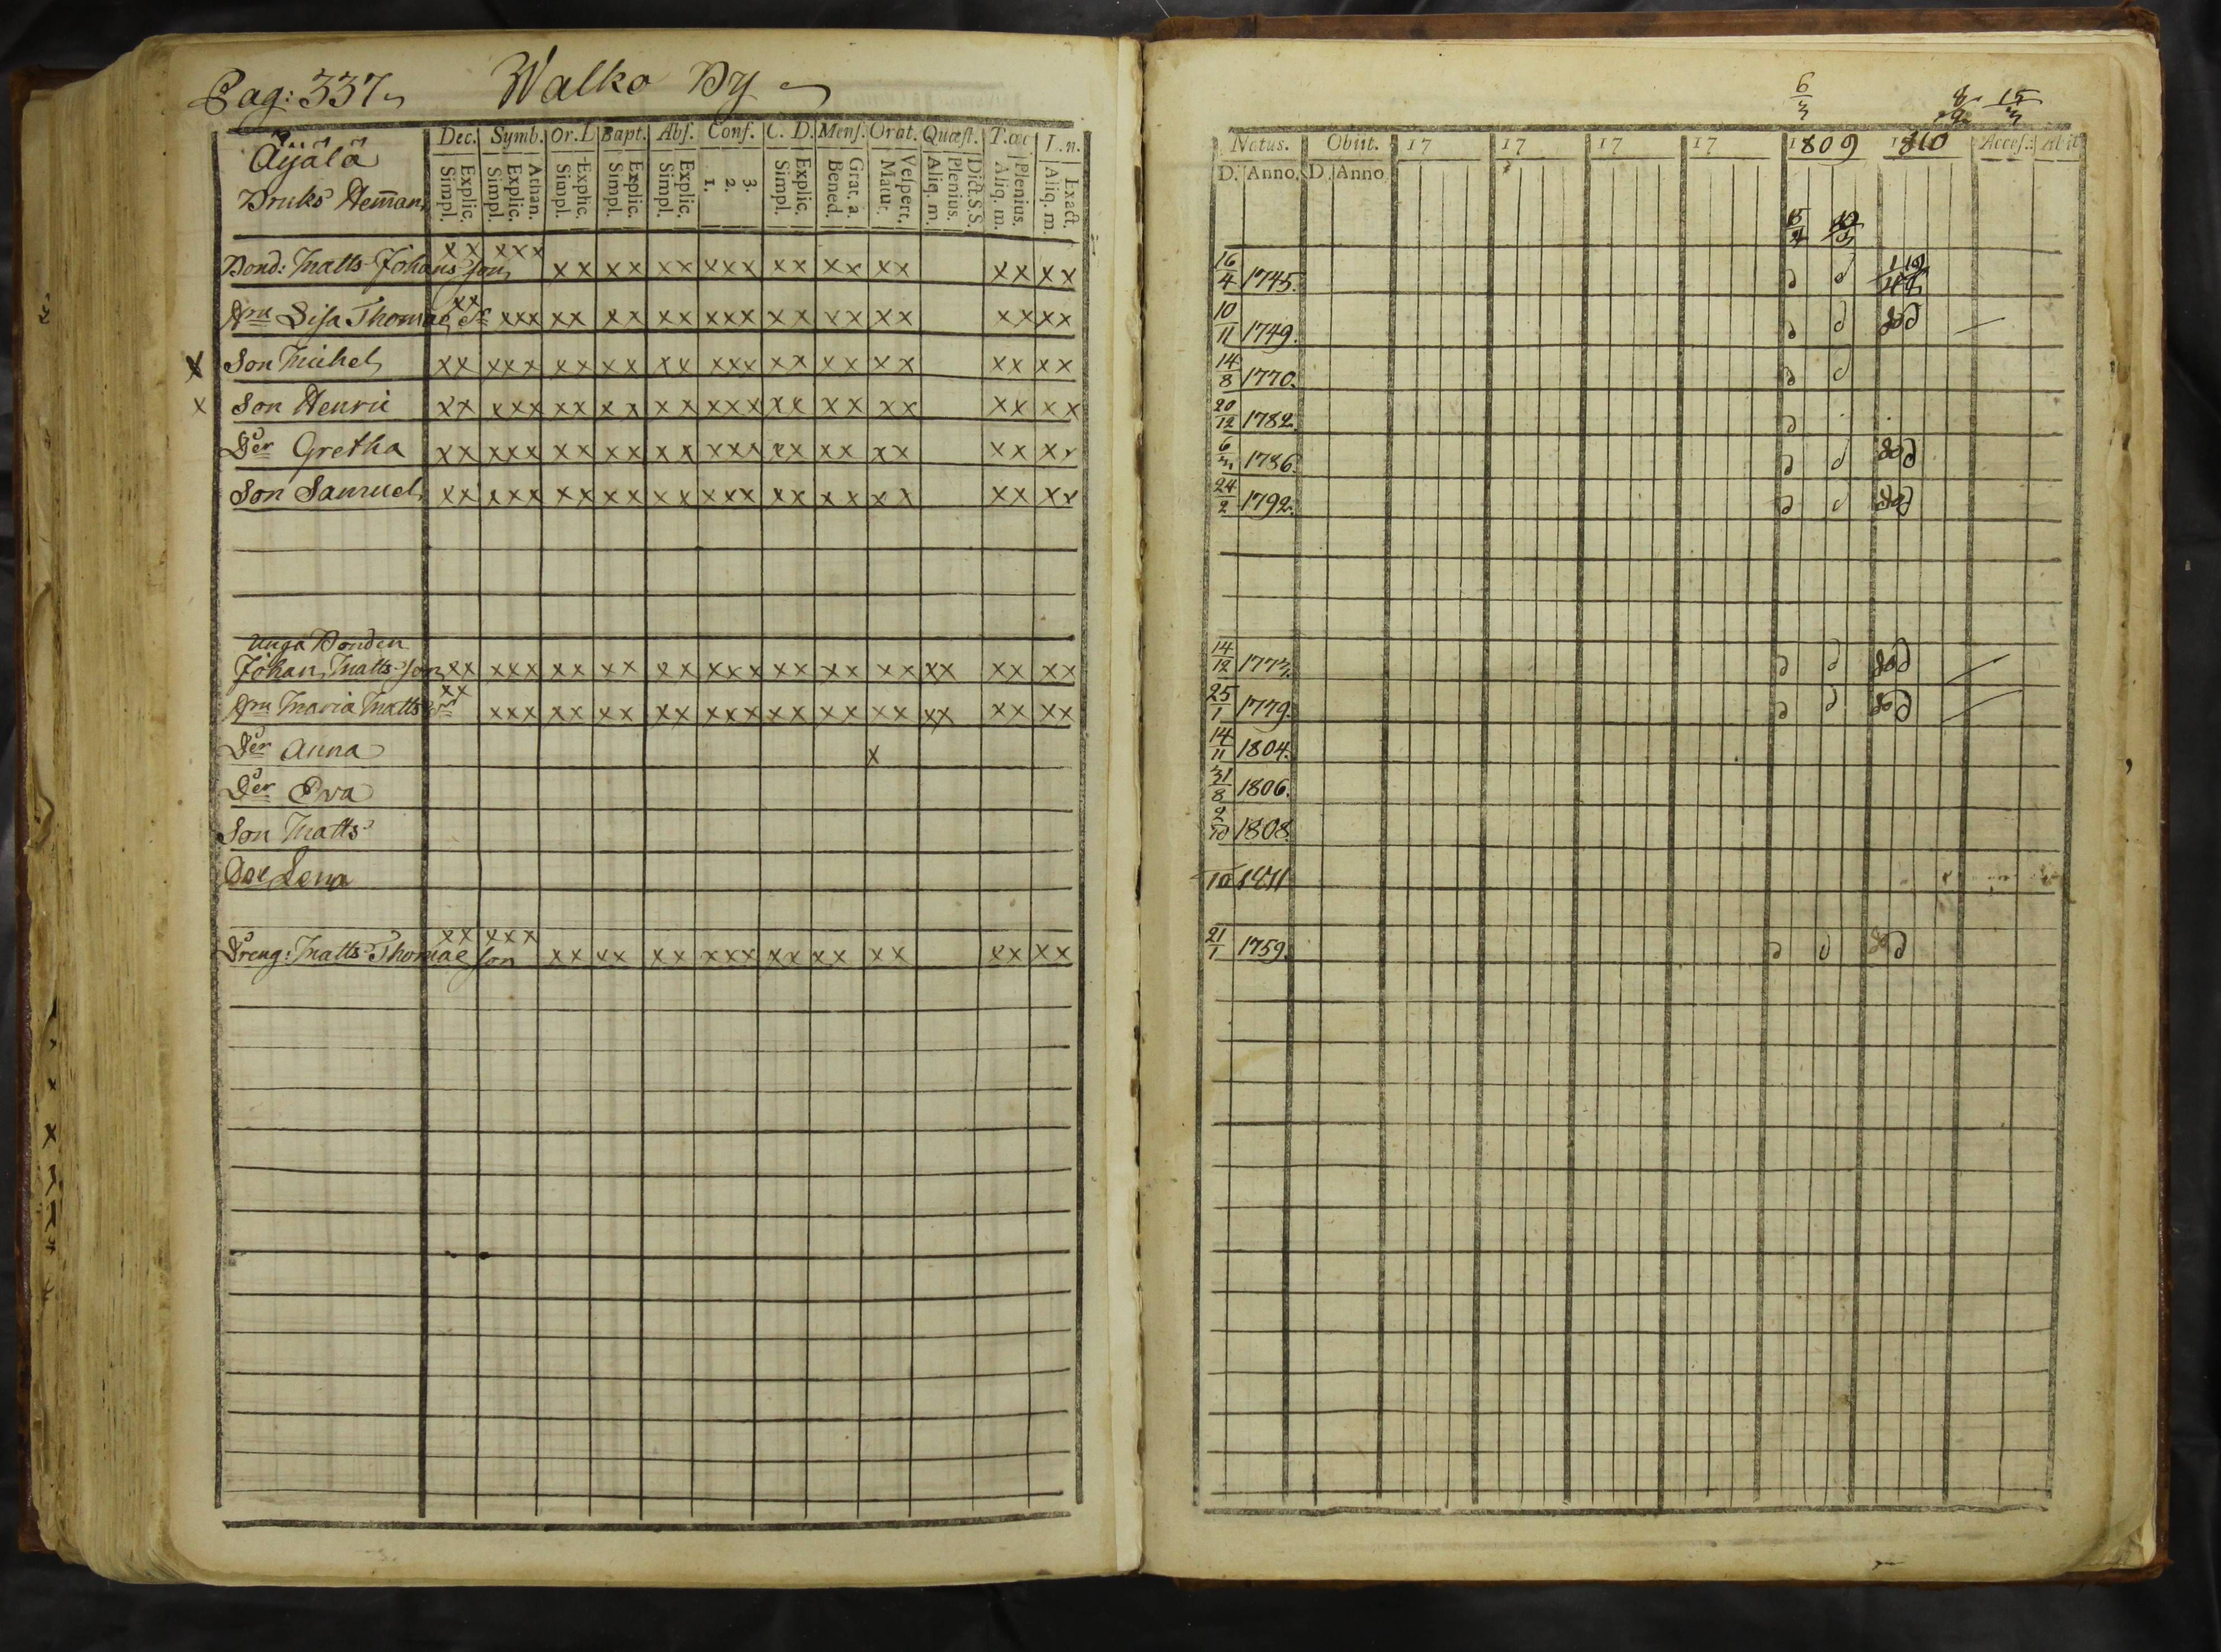 Pag: 337
Walko By
Äijälä
Bruks Hem̄an
Dec. Symb. Or. D Bapt. Abs. Conf. C. D. Mens. Orat. Quæst. T. œc L. n.
Explic. Simpl. Athan. Explic. Simpl. Explic. Simpl. Explic. Simpl. Explic. Simpl. 3. 2. 1. Explic. Simpl. Grat. a. Bened. Vespert. Matut. Dict. S. S. Plenius. Aliq. m. Plenius. Aliq. m. Exact. Aliq. m.
Bond: Matts Johans son xx xxx xx xx xx xxx xx xx xx xx xx
Hru Lisa Thomae dr xx xxx xx xx xx xxx xx xx xx xx xx
x Son Michel xx xxx xx xx xx xxx xx xx xx xx xx
x Son Henric xx xxx xx xx xx xxx xx xx xx xx xx
Der Gretha xx xxx xx xx xx xxx xx xx xx xx xx
Son Samuel xx xxx xx xx xx xxx xx xx xx xx xx
Unga Bonden
Johan Matts son xx xxx xx xx xx xxx xx xx xx xx xx xx
Hru Maria Matts dr xx xxx xx xx xx xxx xx xx xx xx xx xx
Der Anna x
Der Ewa
Son Matts
Der Lena
Dreng: Matts Thomae son xx xxx xx xx xx xxx xx xx xx xx xx
6/3 8/9 15/3
Natus. Obiit. 17 17 17 17 1809 1810 Acces. Abiit
D. Anno. D. Anno
16/4 1745.
10/11 1749.
14/8 1770.
20/12 1782.
6/3 1786.
24/2 1792.
14/12 1773.
25/1 1779.
14/11 1804.
31/8 1806.
2/10 1808.
10 1811
21/1 1759.